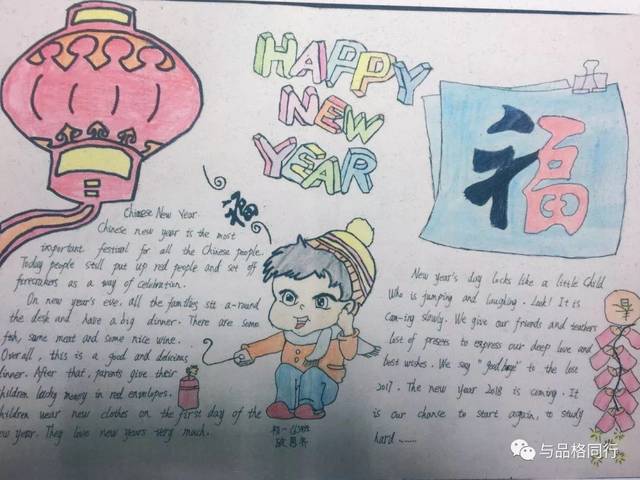 HAPPY
NEW
YEAR
福
福
Chinese New Year
Chinese new year is the most
important festival for all the Chinese people.
Today people still put up red people and set of
firecrackers as a way of celebration.
On new year's eve, all the families sit a-round
the desk and have a big dinner. There are some
fish, some meat and some nice wine.
Overall, this is a good and delicious
dinner. After that, parents give their
children lucky money in red envelopes.
children wear new clothes on the first day of the
new year. They love new years very much.
New year's day looks like a little child
Who is jumping and laughing. Look! It is
Com-ing slowly. We give our friends and teachers
lost of presets to express our deep love and
best wishes. We say "good bye" to the lost
2017. The new year 2018 is coming. It
is our chance to start again, to study
hard......
与品格同行